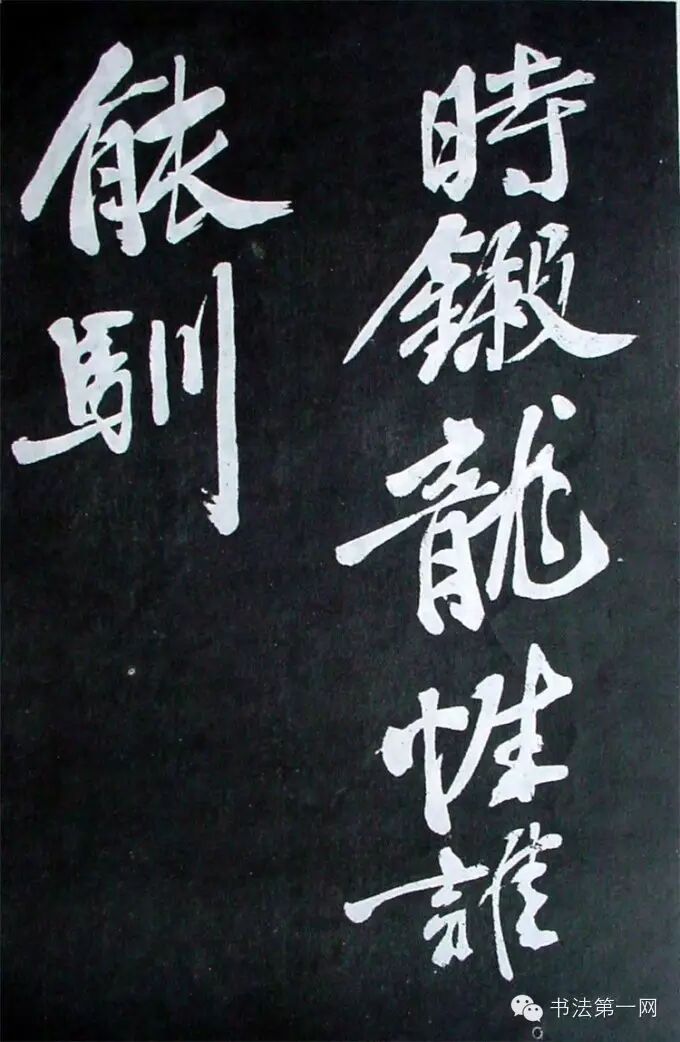 時鎩龍性誰
能馴
书法第一网